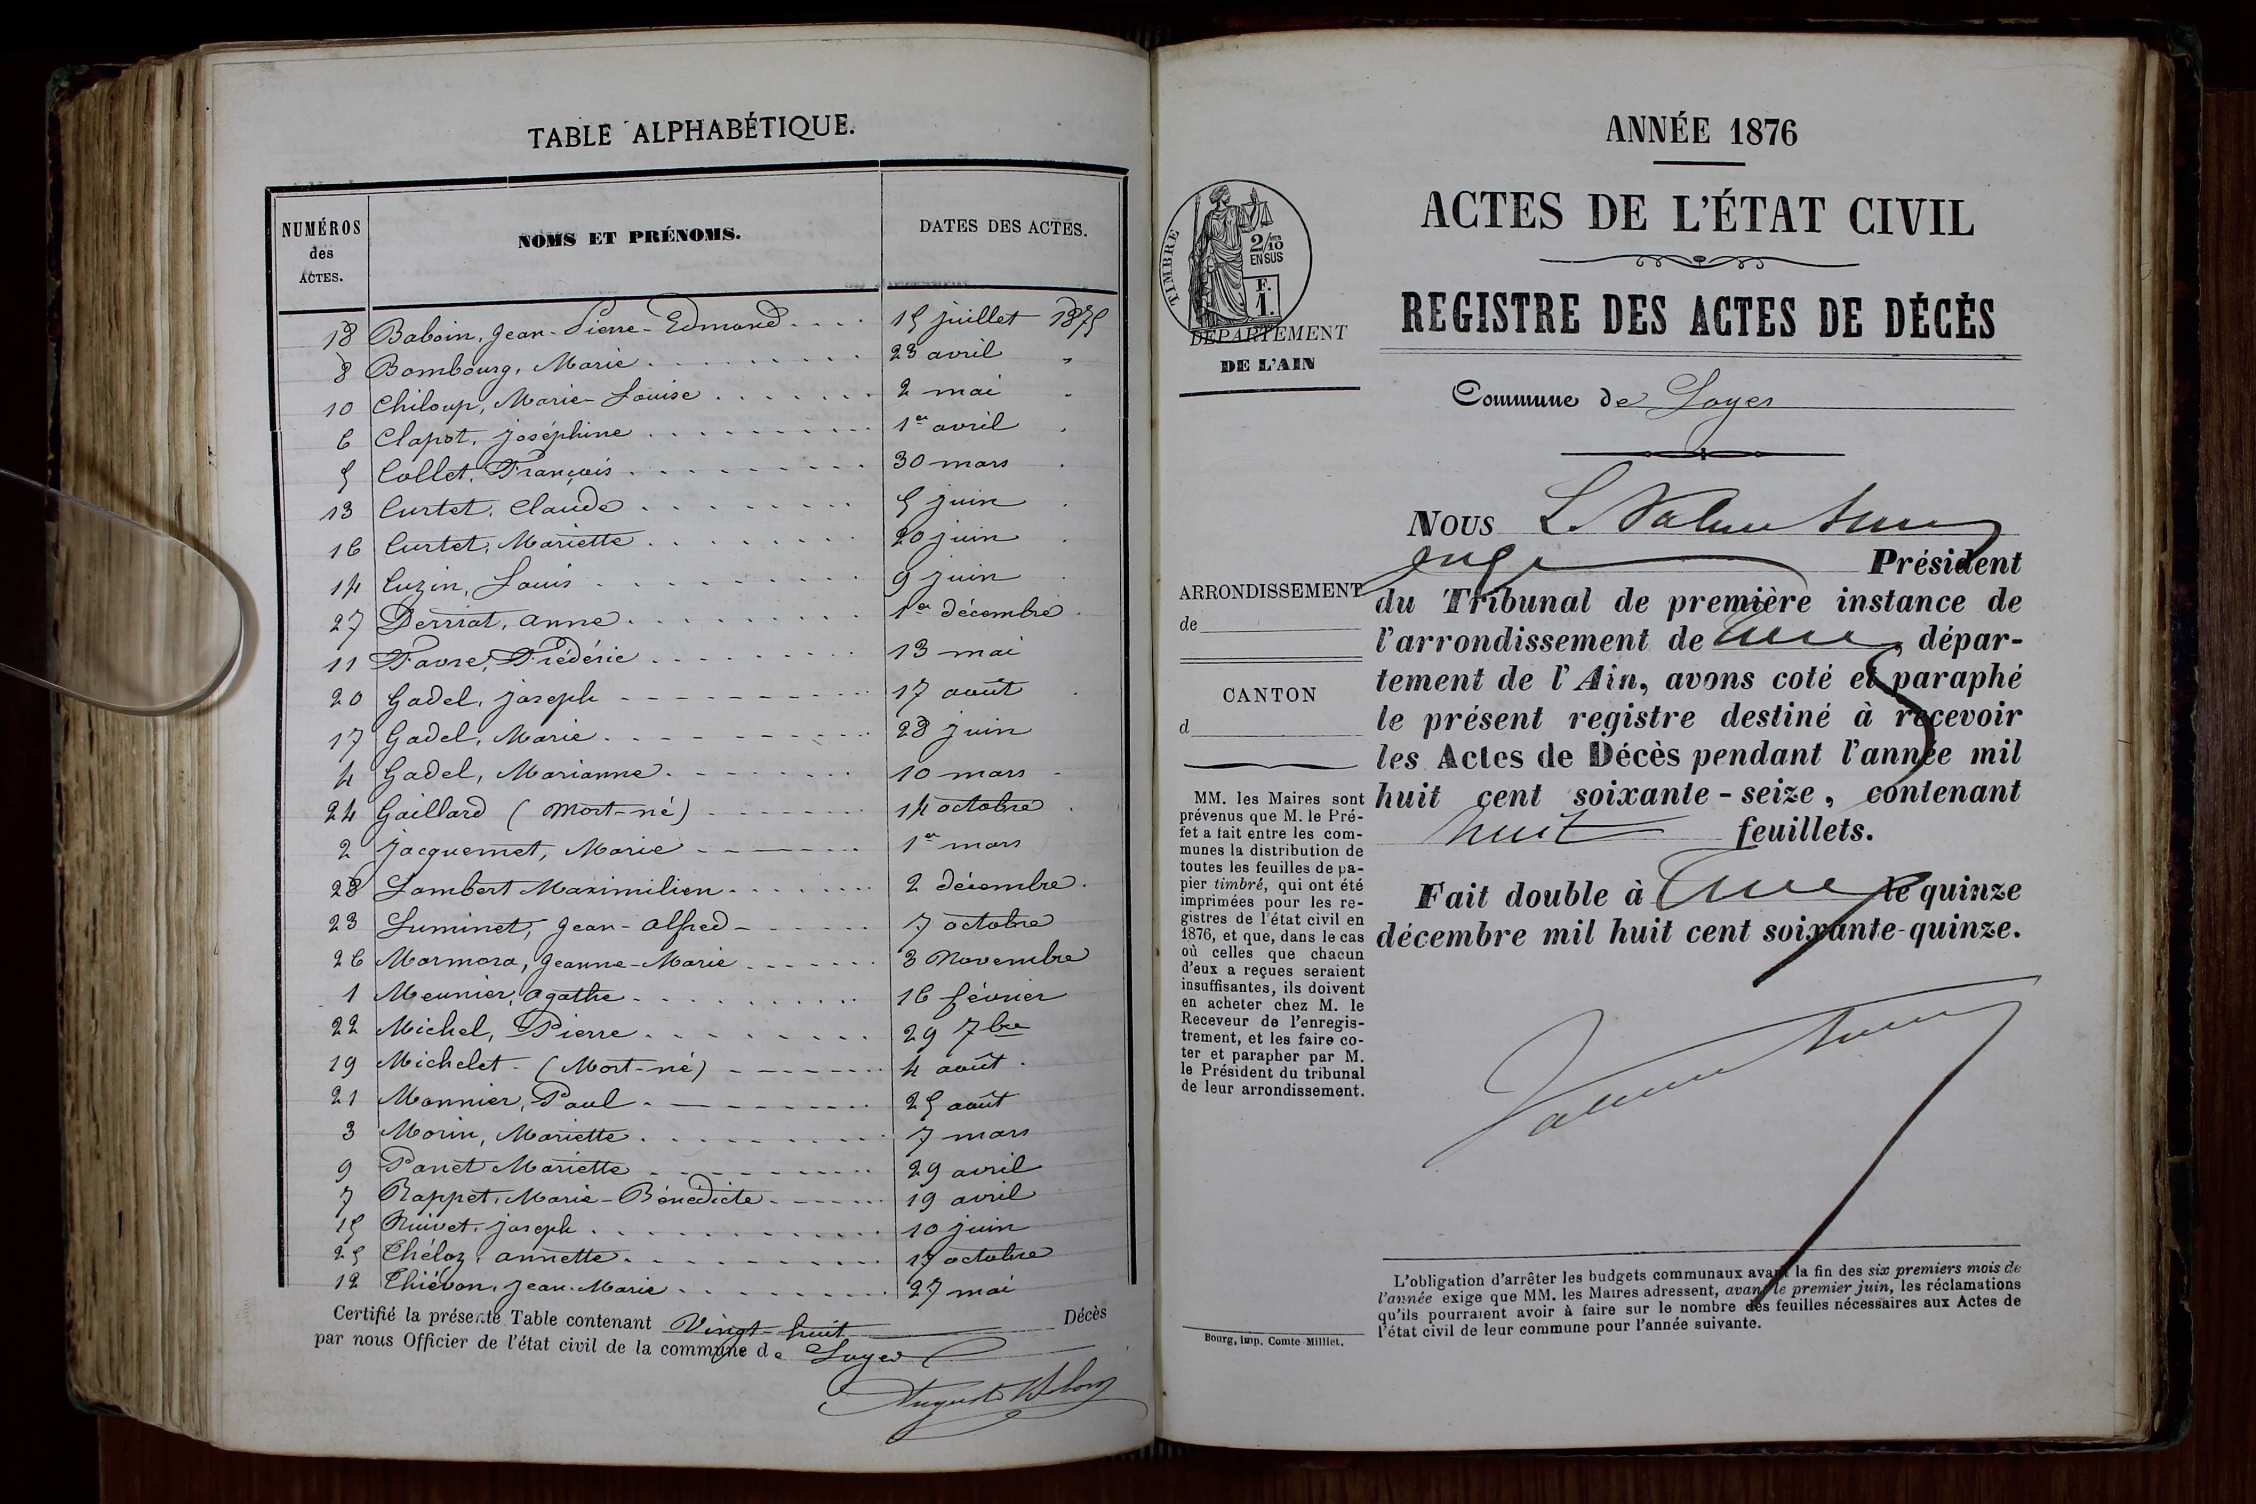 TABLE ALPHABÉTIQUE.
NUMÉROS des ACTES.
NOMS ET PRÉNOMS.
DATES DES ACTES.
18 Baboin, Jean-Pierre-Edmond 15 juillet 1875
8 Bombourg, Marie 23 avril "
10 Chiloup, Marie-Louise 2 mai "
6 Clapot, joséphine 1er avril
5 Collet, François 30 mars
13 Curtet, Claude 5 juin
16 Curtet, Mariette 20 juin
14 Cuzin, Louis 9 juin
27 Derriat, anne 1er décembre
11 Favre, Frédéric 13 mai
20 Gadel, joseph 17 août
17 Gadel, Marie 28 juin
4 Gadel, Marianne 10 mars
24 Gaillard (Mort-né) 14 octobre
2 Jacquemet, Marie 1er mars
28 Lambert Maximilien 2 décembre
23 Luminet, Jean-Alfred 7 octobre
26 Marmora, Jeanne-Marie 3 Novembre
1 Meunier, Agathe 16 février
22 Michel, Pierre 29 7bre
19 Michelet (Mort-né) 4 août
21 Monnier, Paul 25 août
3 Morin, Mariette 7 mars
9 Panet Mariette 29 avril
7 Rappet, Marie-Bénédicte 19 avril
15 Ruivet, joseph 10 juin
25 Théloz, annette 17 octobre
12 Thiévon, Jean-Marie 27 mai
Certifié la présente Table contenant Vingt-huit Décès
par nous Officier de l'état civil de la commune de Loyes
ANNÉE 1876
ACTES DE L'ÉTAT CIVIL
REGISTRE DES ACTES DE DÉCÈS
TIMBRE
2/10 EN SUS
F. 1.
DÉPARTEMENT
DE L'AIN
Commune de Loyes
NOUS L. Valen
juge Président
du Tribunal de première instance de
l'arrondissement de , dépar-
tement de l'Ain, avons coté et paraphé
le présent registre destiné à recevoir
les Actes de Décès pendant l'année mil
huit cent soixante-seize, contenant
huit feuillets.
Fait double à le quinze
décembre mil huit cent soixante-quinze.
ARRONDISSEMENT
de
CANTON
d
MM. les Maires sont
prévenus que M. le Pré-
fet a fait entre les com-
munes la distribution de
toutes les feuilles de pa-
pier timbré, qui ont été
imprimées pour les re-
gistres de l'état civil en
1876, et que, dans le cas
où celles que chacun
d'eux a reçues seraient
insuffisantes, ils doivent
en acheter chez M. le
Receveur de l'enregis-
trement, et les faire co-
ter et parapher par M.
le Président du tribunal
de leur arrondissement.
Bourg, imp. Comte-Milliet.
L'obligation d'arrêter les budgets communaux avant la fin des six premiers mois de
l'année exige que MM. les Maires adressent, avant le premier juin, les réclamations
qu'ils pourraient avoir à faire sur le nombre des feuilles nécessaires aux Actes de
l'état civil de leur commune pour l'année suivante.